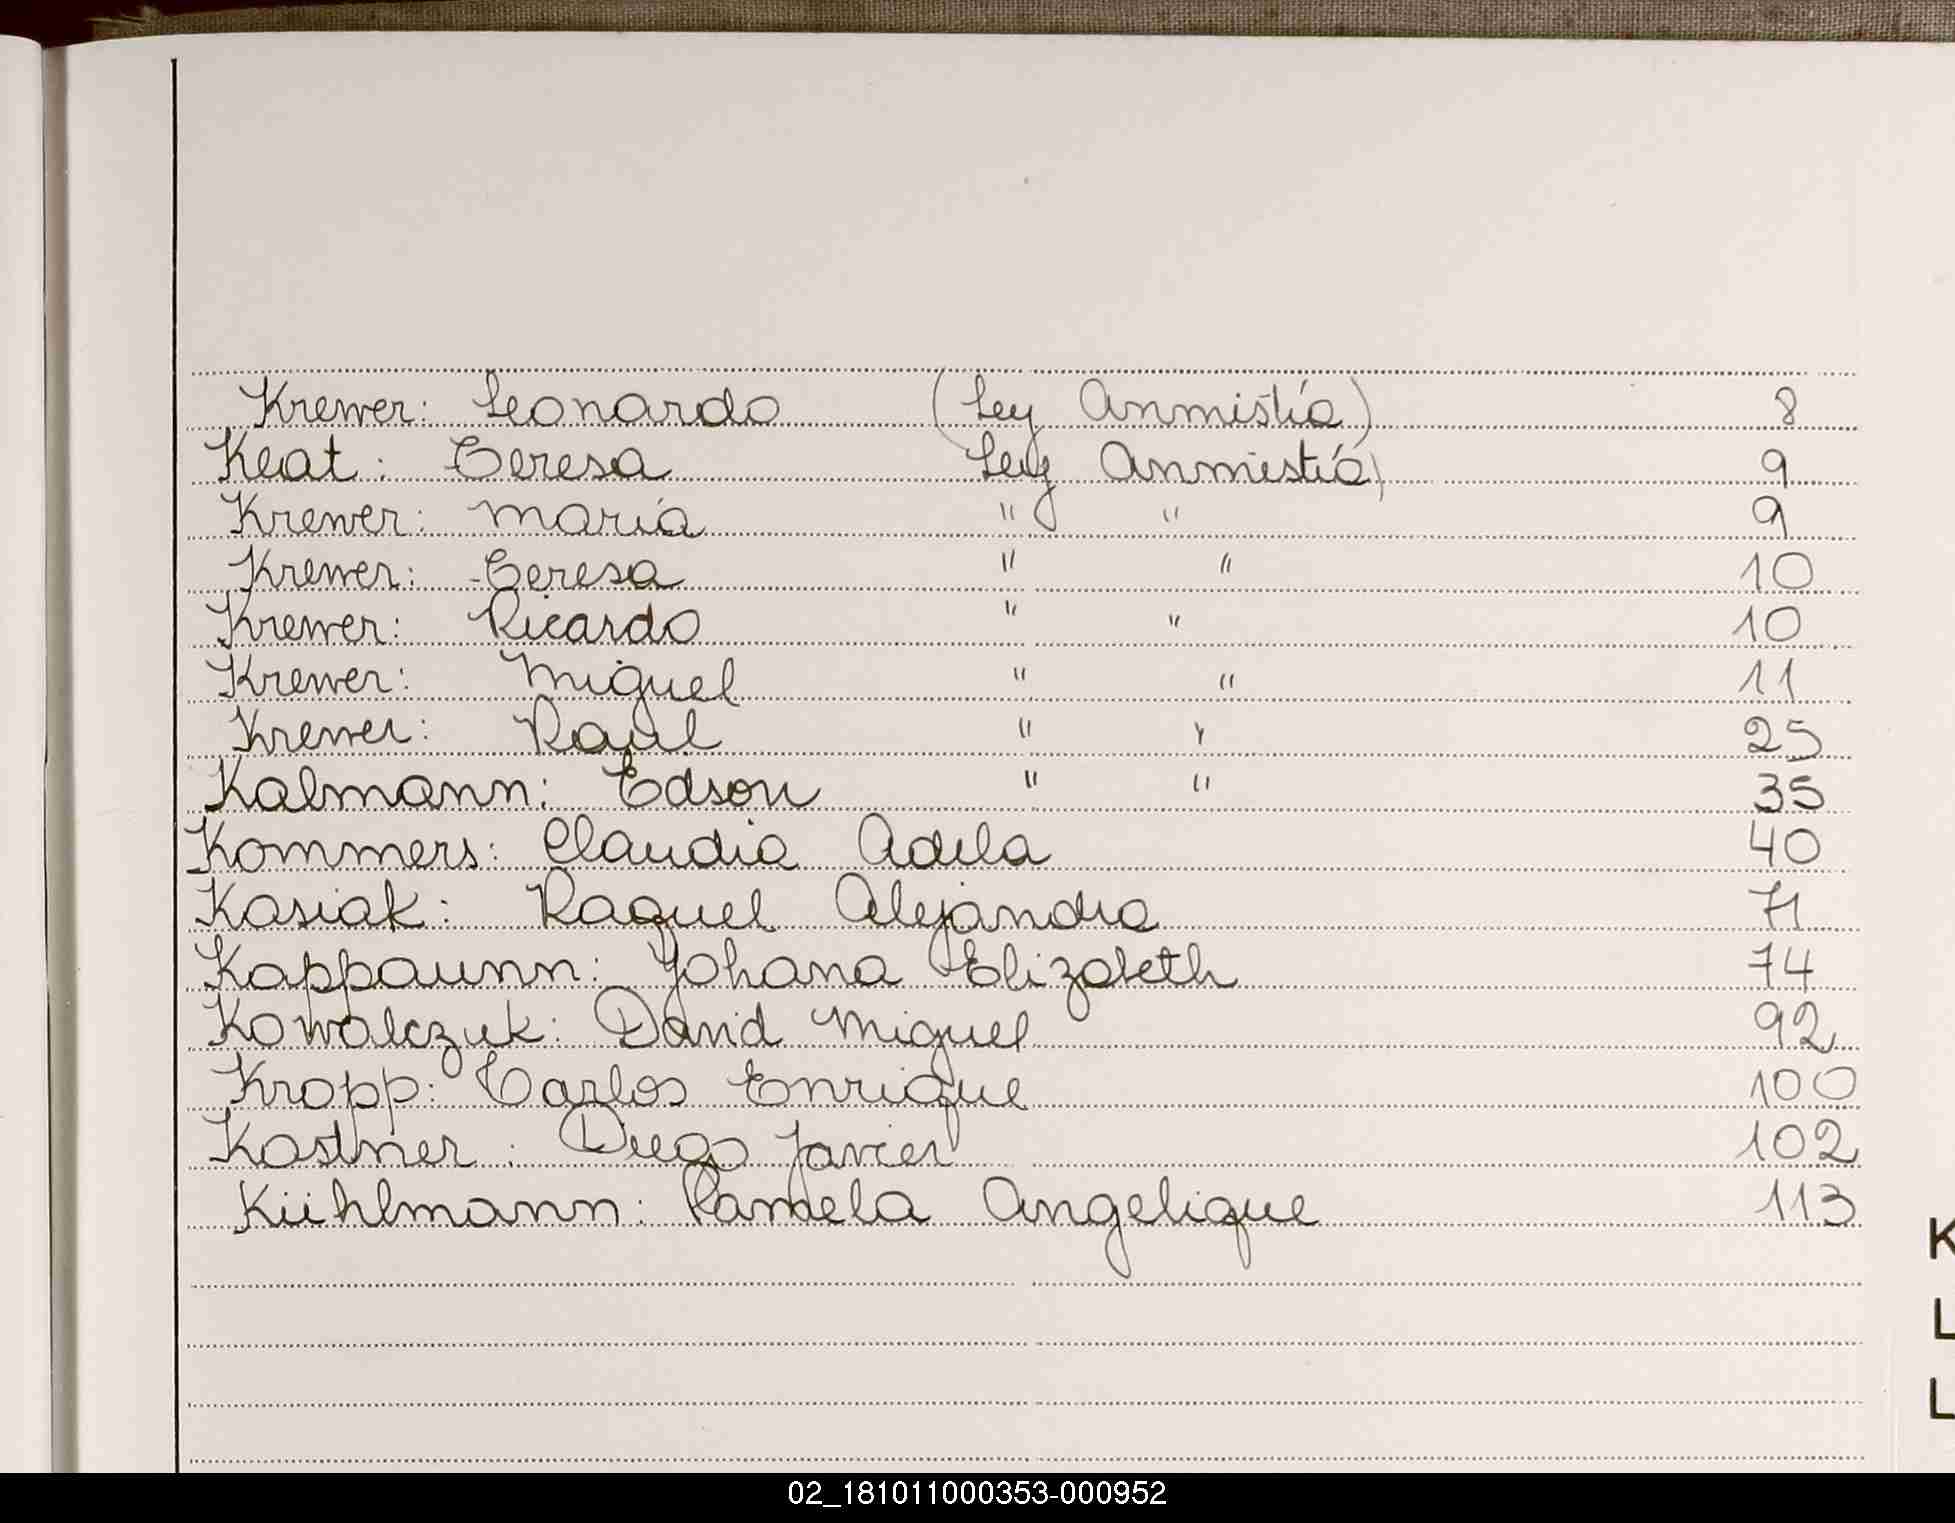 Krewer: Leonardo (Ley Anmistía) 8
Keat: Teresa Ley Anmistía) 9
Krewer: María " " 9
Krewer: Teresa " " 10
Krewer: Ricardo " " 10
Krewer: Miguel " " 11
Krewer: Raul " " 25
Kalmann: Edson " " 35
Kommers: Claudia Adela 40
Kasiak: Raquel Alejandra 71
Kappaunn: Yohana Elizabeth 74
Kowalczuk: David Miguel 92
Kropp: Carlos Enrique 100
Kostner: Diego Javier 102
Kühlmann: Pamela Angelique 113
K
L
L
02_181011000353-000952